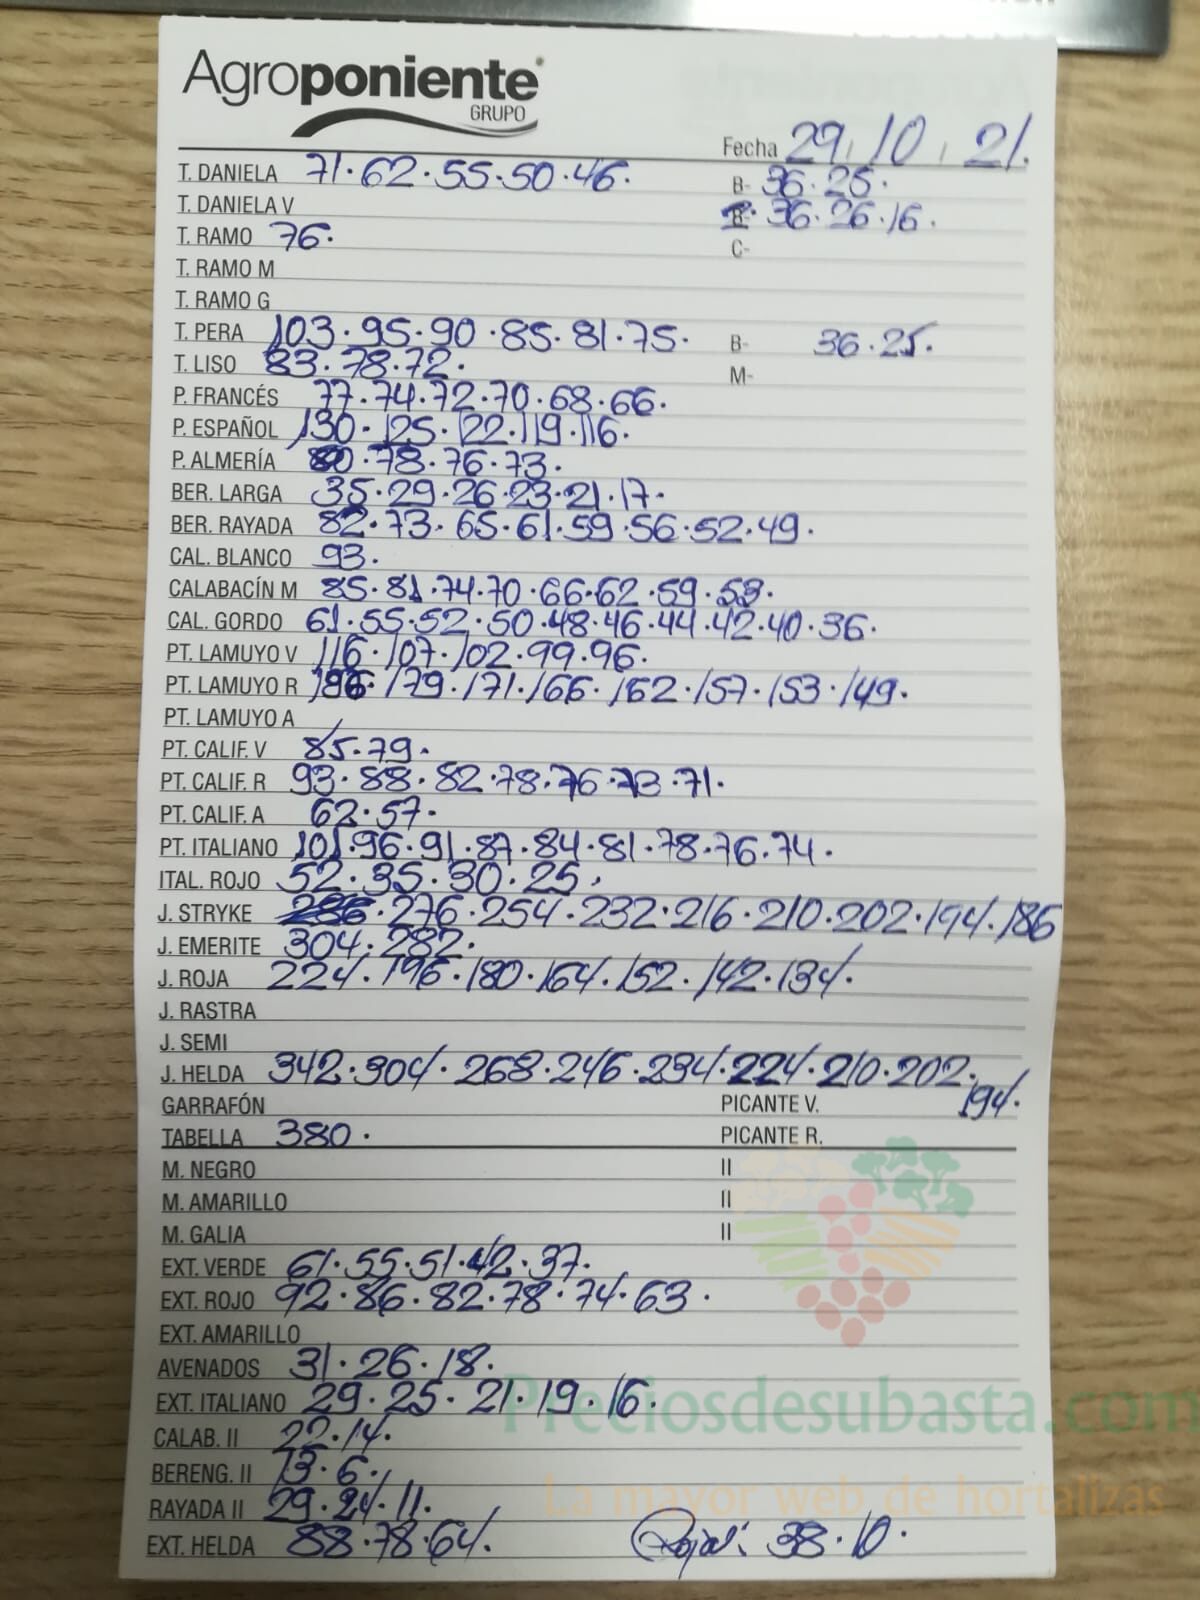 Agroponiente
GRUPO
Fecha 29 / 10 / 21.
T. DANIELA 71·62·55·50·46. B- 36·25.
T. DANIELA V 36·26·16.
T. RAMO 76. C-
T. RAMO M
T. RAMO G
T. PERA 103·95·90·85·81·75. B- 36·25.
T. LISO 83·78·72. M-
P. FRANCÉS 77·74·72·70·68·66.
P. ESPAÑOL 130·125·122·119·116.
P. ALMERÍA 80·78·76·73.
BER. LARGA 35·29·26·23·21·17.
BER. RAYADA 82·73·65·61·59·56·52·49.
CAL. BLANCO 93.
CALABACÍN M 85·81·74·70·66·62·59·53.
CAL. GORDO 61·55·52·50·48·46·44·42·40·36.
PT. LAMUYO V 116·107·102·99·96.
PT. LAMUYO R ·179·171·166·162·157·153·149.
PT. LAMUYO A
PT. CALIF. V 85·79.
PT. CALIF. R 93·88·82·78·76·73·71.
PT. CALIF. A 62·57.
PT. ITALIANO 101·96·91·87·84·81·78·76·74.
ITAL. ROJO 52·35·30·25.
J. STRYKE 286·276·254·232·216·210·202·194·186
J. EMERITE 304·282.
J. ROJA 224·196·180·164·152·142·134.
J. RASTRA
J. SEMI
J. HELDA 342·304·268·246·234·224·210·202.
194.
GARRAFÓN PICANTE V.
TABELLA 380. PICANTE R.
M. NEGRO II
M. AMARILLO II
M. GALIA II
EXT. VERDE 61·55·51·42·37.
EXT. ROJO 92·86·82·78·74·63.
EXT. AMARILLO
AVENADOS 31·26·18.
EXT. ITALIANO 29·25·21·19·16.
Preciosdesubasta.com
CALAB. II 22·14.
BERENG. II 13·6.
La mayor web de hortalizas
RAYADA II 29·24·11.
EXT. HELDA 88·78·64. 38·10.